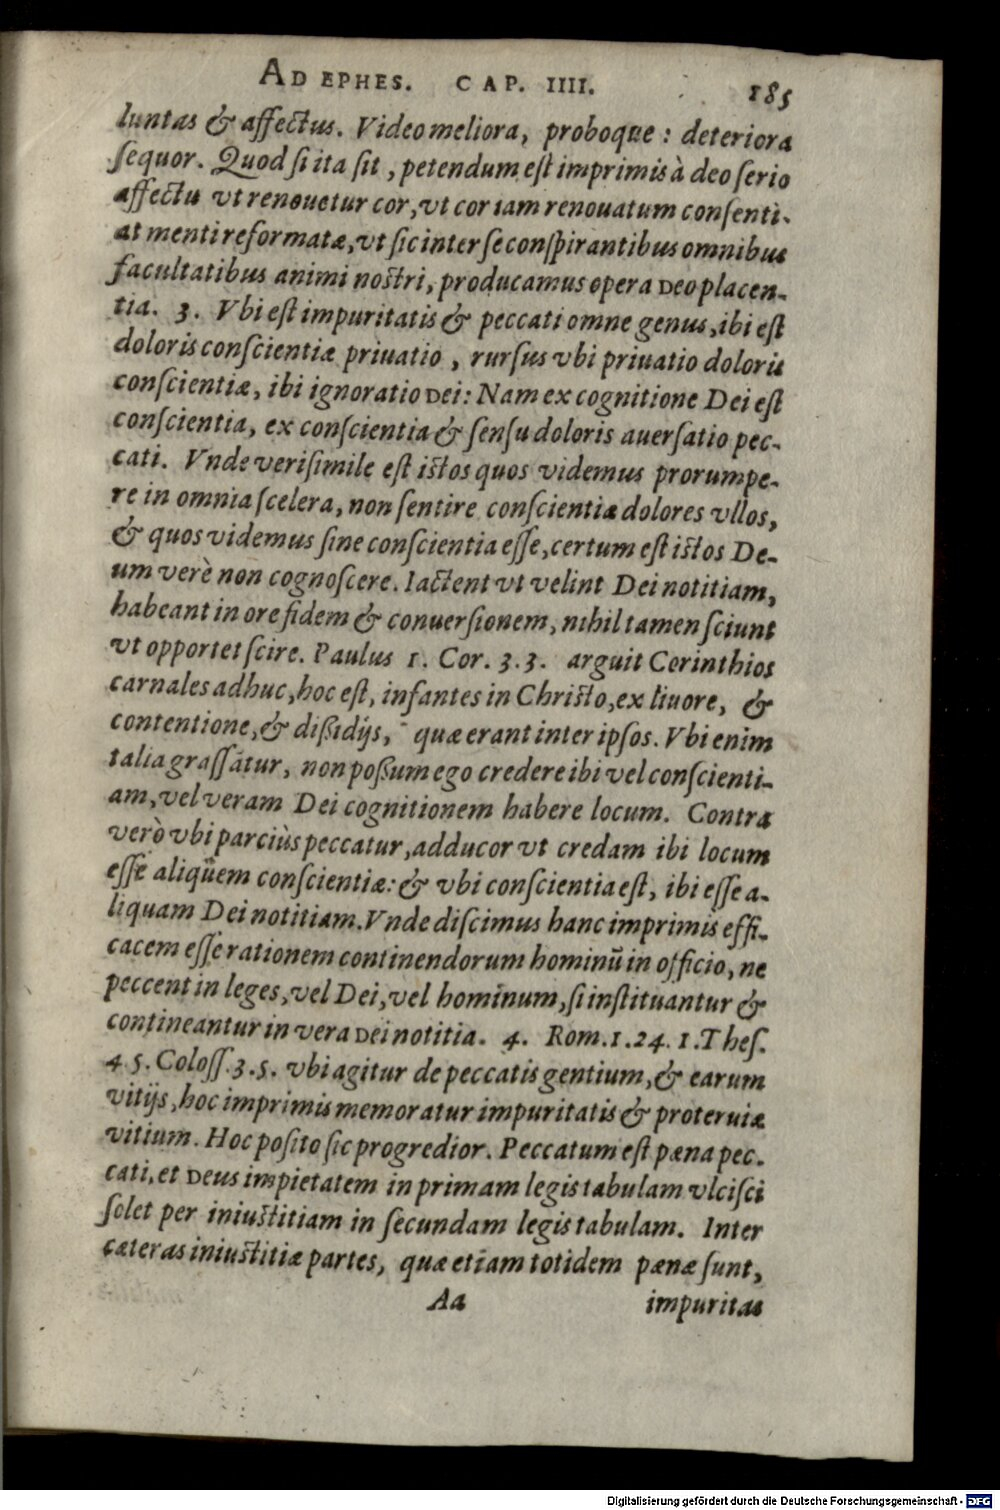 AD EPHES. CAP. IIII. 185
luntas & affectus. Video meliora, proboque: deteriora
sequor. Quod si ita sit, petendum est imprimis à deo serio
affectu vt renouetur cor, vt cor iam renouatum consenti-
at menti reformatæ, vt sic inter se conspirantibus omnibus
facultatibus animi nostri, producamus opera Deo placen-
tia. 3. Vbi est impuritatis & peccati omne genus, ibi est
doloris conscientiæ priuatio, rursus vbi priuatio doloris
conscientiæ, ibi ignoratio Dei: Nam ex cognitione Dei est
conscientia, ex conscientia & sensu doloris auersatio pec-
cati. Vnde verisimile est istos quos videmus prorumpe-
re in omnia scelera, non sentire conscientiæ dolores vllos,
& quos videmus sine conscientia esse, certum est istos De-
um verè non cognoscere. Iactent vt velint Dei notitiam,
habeant in ore fidem & conuersionem, nihil tamen sciunt
vt opportet scire. Paulus 1. Cor. 3.3. arguit Corinthios
carnales adhuc, hoc est, infantes in Christo, ex liuore, &
contentione, & dißidijs, quæ erant inter ipsos. Vbi enim
talia grassātur, non poßum ego credere ibi vel conscienti-
am, vel veram Dei cognitionem habere locum. Contra
verò vbi parciùs peccatur, adducor vt credam ibi locum
esse aliquem conscientiæ: & vbi conscientia est, ibi esse a-
liquam Dei notitiam. Vnde discimus hanc imprimis effi-
cacem esse rationem continendorum hominū in officio, ne
peccent in leges, vel Dei, vel hominum, si instituantur &
contineantur in vera Dei notitia. 4. Rom. 1.24. 1. Thes.
4 5. Coloss. 3.5. vbi agitur de peccatis gentium, & earum
vitijs, hoc imprimis memoratur impuritatis & proteruiæ
vitium. Hoc posito sic progredior. Peccatum est pæna pec-
cati, et Deus impietatem in primam legis tabulam vlcisci
solet per iniustitiam in secundam legis tabulam. Inter
cæteras iniustitiæ partes, quæ etiam totidem pænæ sunt,
Aa impuritas
Digitalisierung gefördert durch die Deutsche Forschungsgemeinschaft - DFG